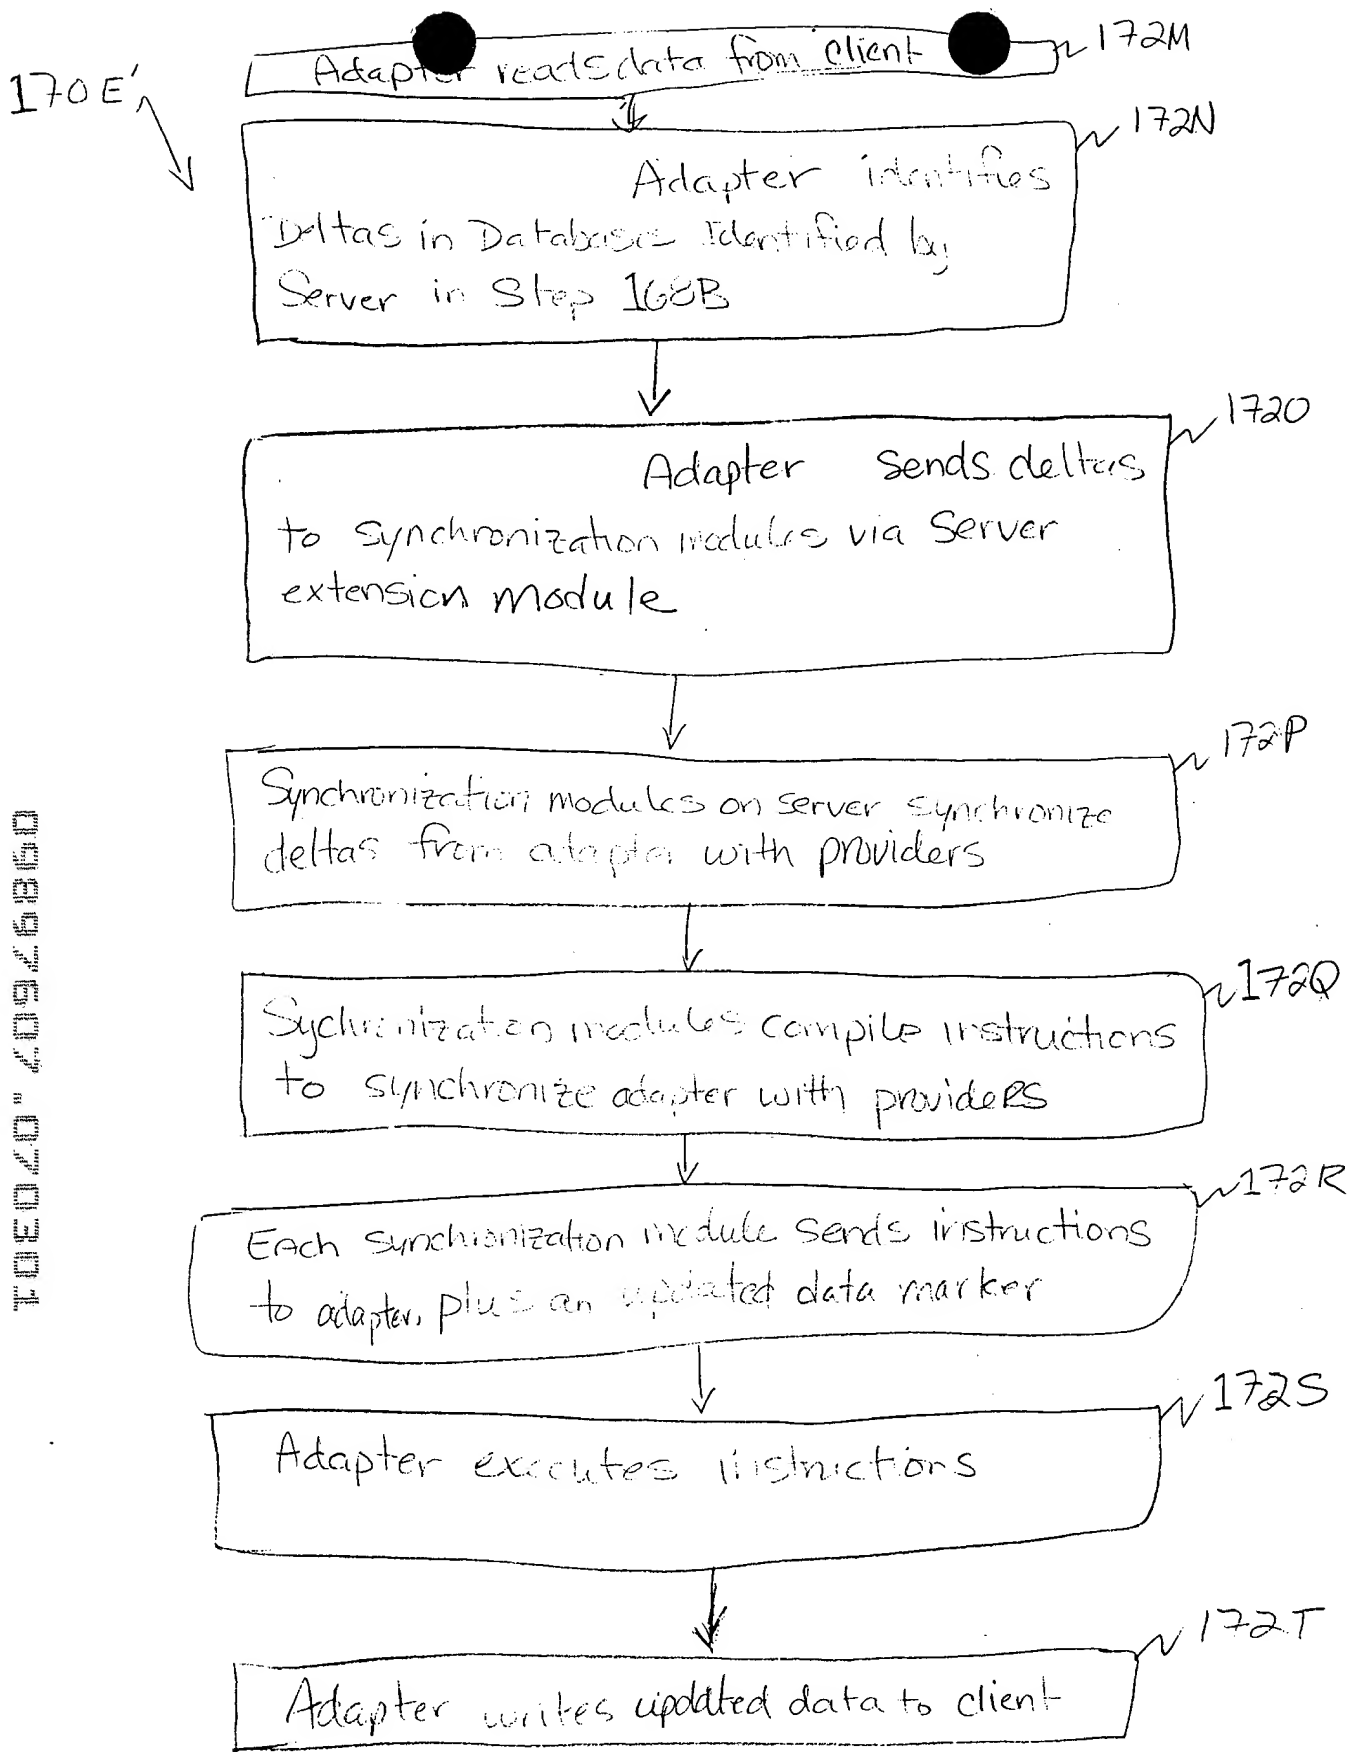 172M
Adapter reads data from client
170E'
172N
Adapter identifies
Deltas in Databases Identified by
Server in Step 168B
172O
Adapter sends deltas
to synchronization modules via Server
extension module
172P
Synchronization modules on server synchronize
deltas from adapter with providers
172Q
Sychronization modules compile instructions
to synchronize adapter with providers
172R
Each synchronization module sends instructions
to adapter, plus an updated data marker
172S
Adapter executes instructions
172T
Adapter writes updated data to client
09897607.070301